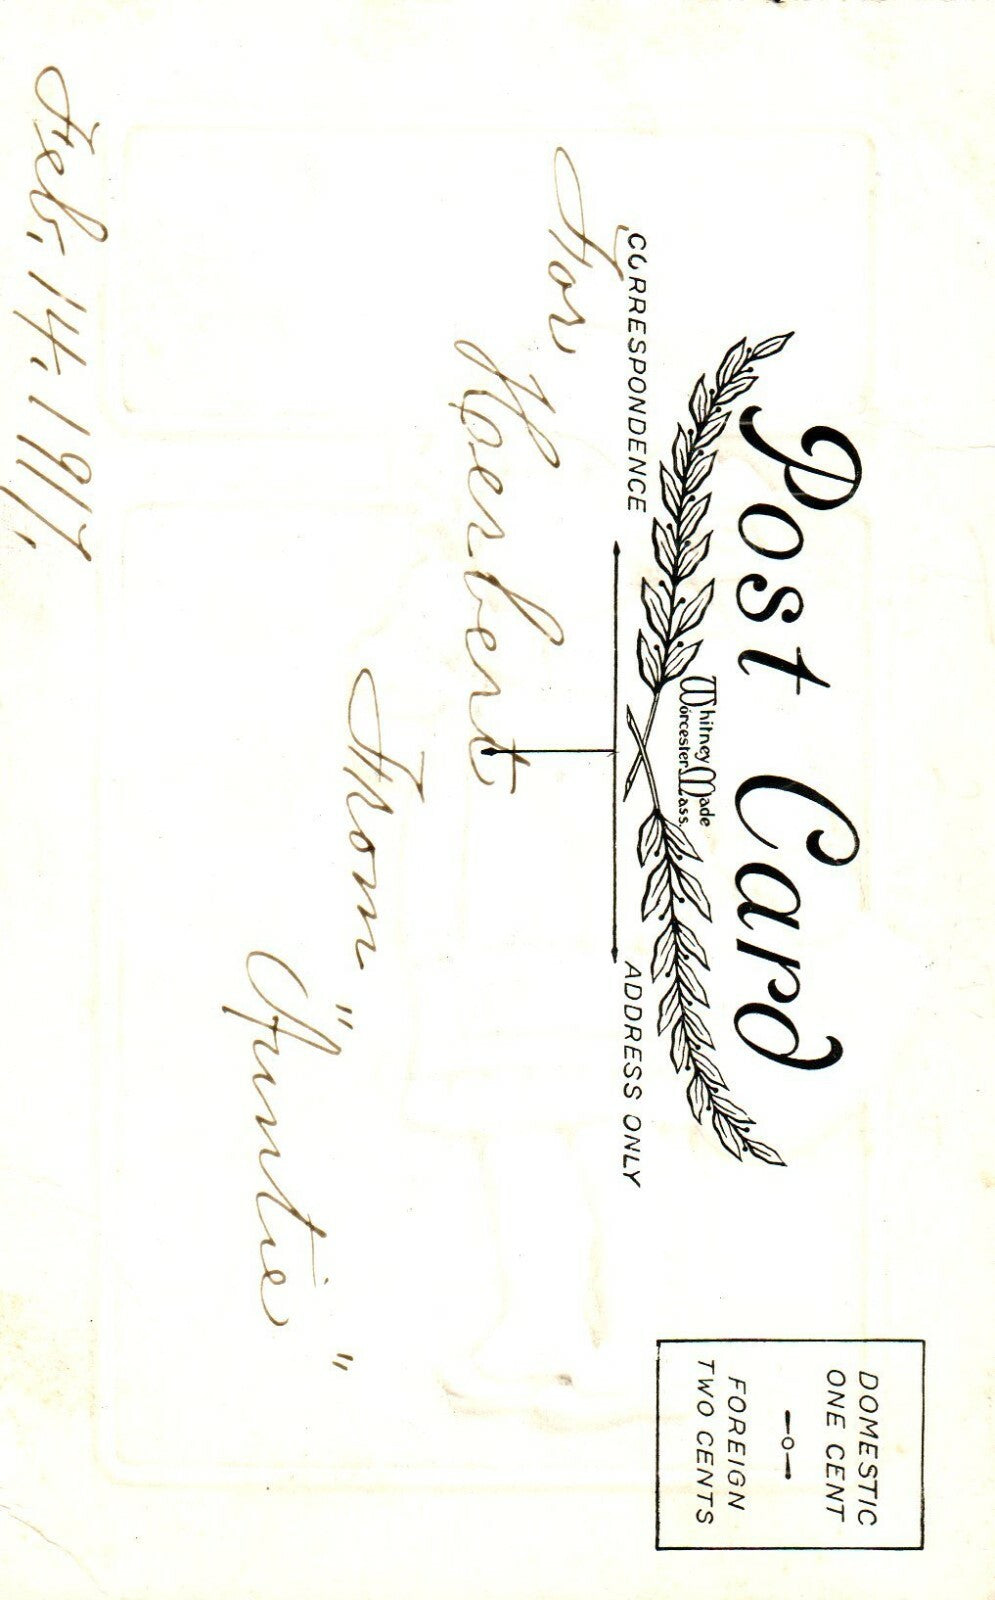 Post Card
Whitney Made
Worcester Mass.
CORRESPONDENCE
ADDRESS ONLY
DOMESTIC
ONE CENT
FOREIGN
TWO CENTS
For
Herbert
From
"Auntie"
Feb. 14. 1917.